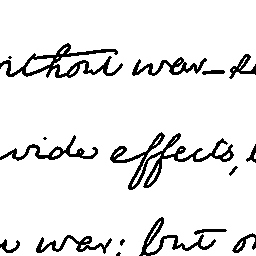 without war-
wide effects,
war: but